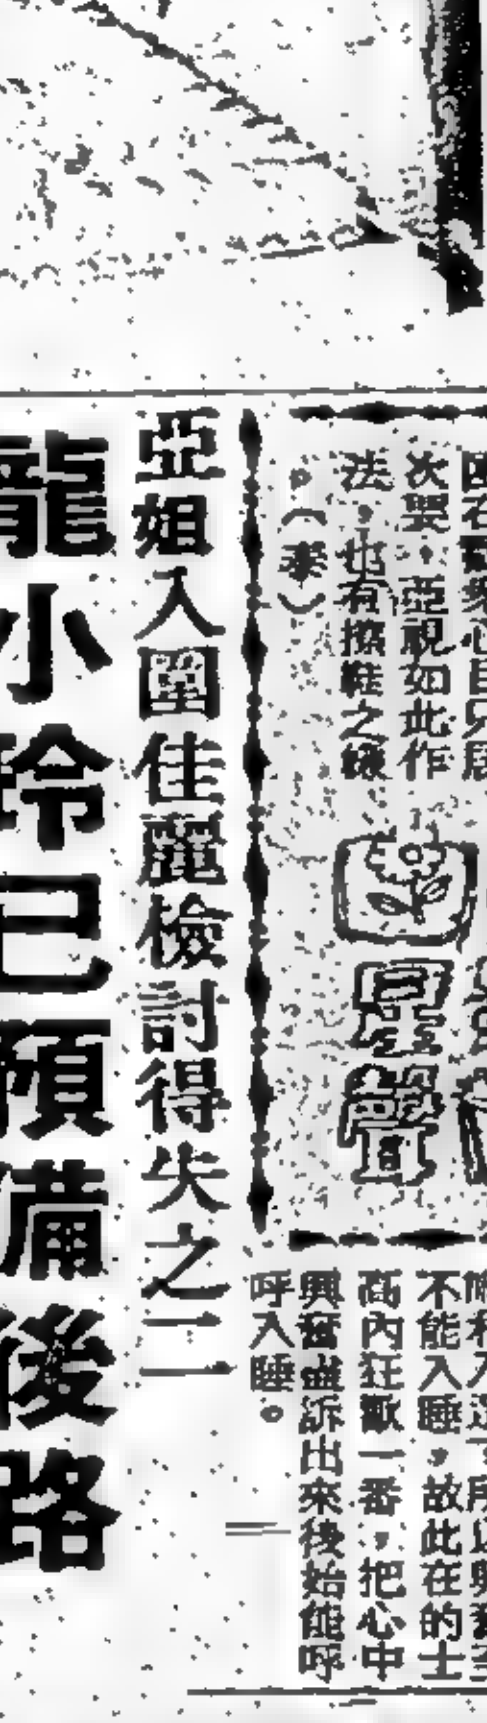 次要，亞視如此作
法，也有撩鞋之嫌
。（泰）
星聲
不能入睡，故此在的士
高內狂歡一番，把心中
興奮盡訴出來後始能呼
呼入睡。
亞姐入圍佳麗檢討得失之二
龍小玲已預備後路